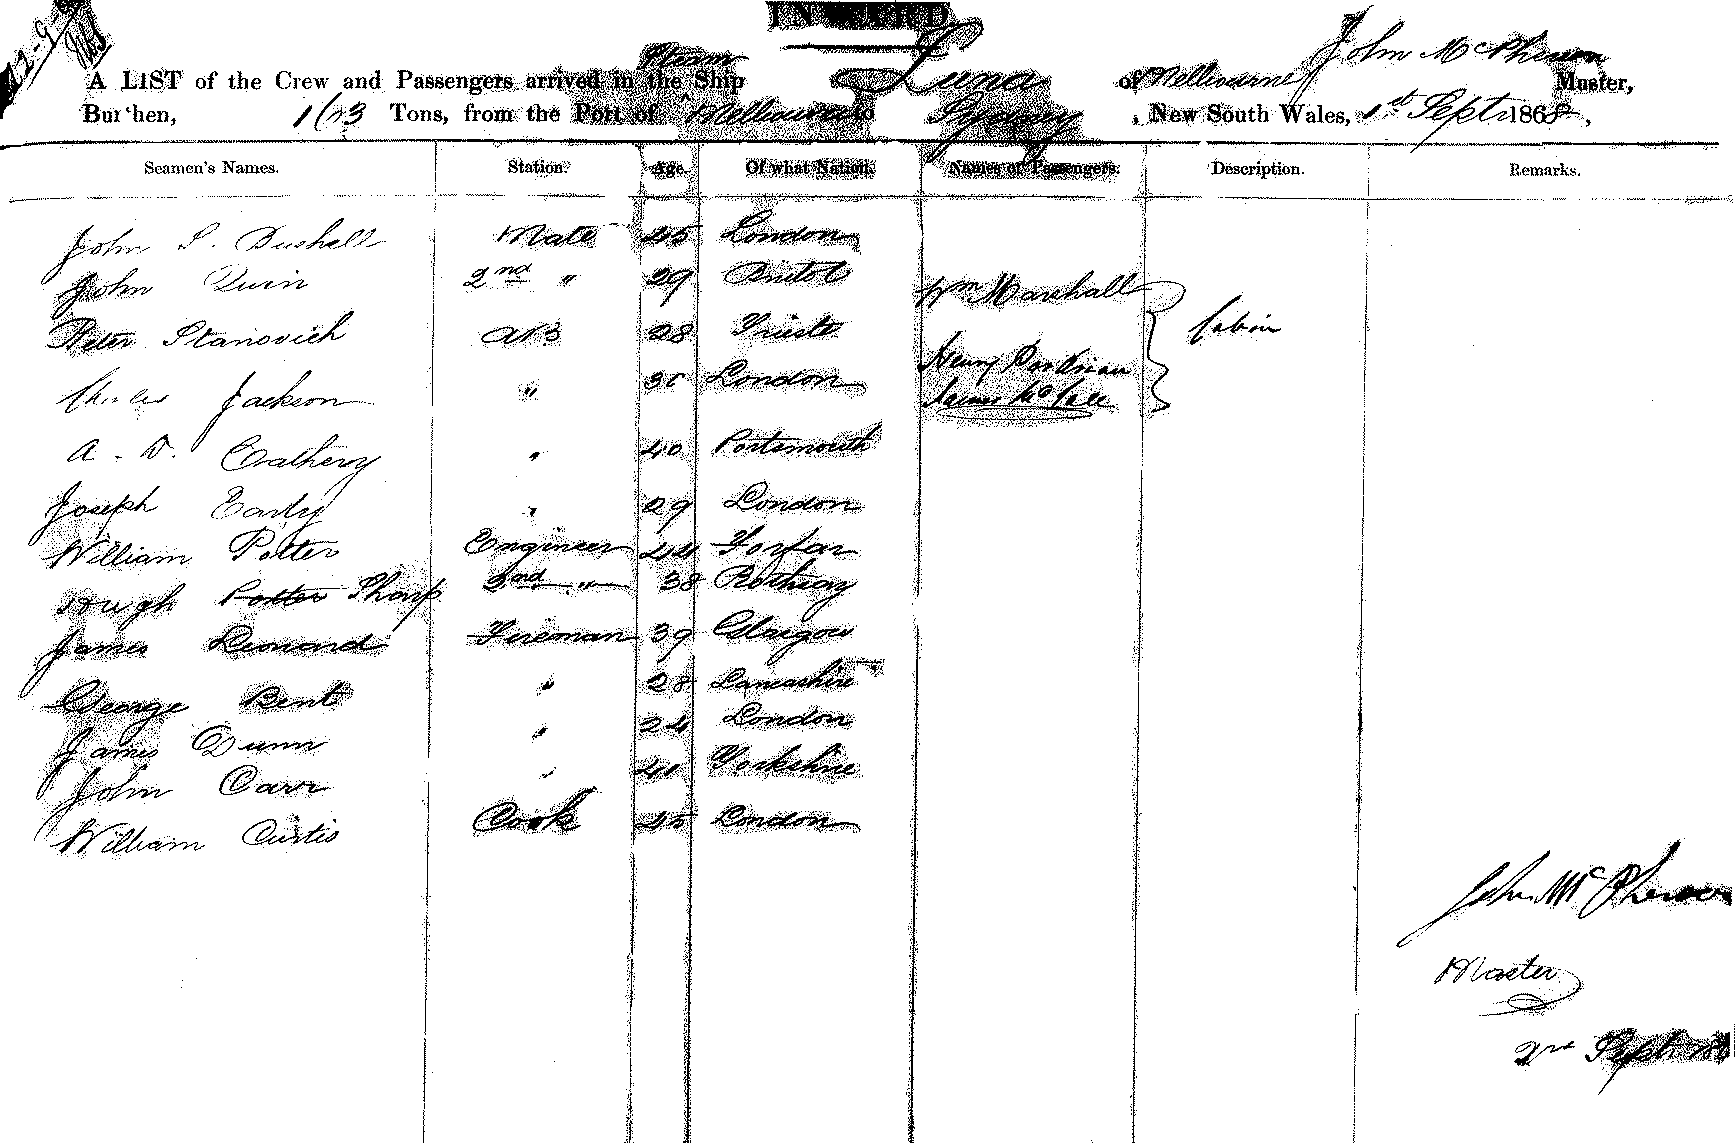 INWARD
A LIST of the Crew and Passengers arrived in the Ship Luna of Melbourne John McPherson Master,
Steam
Burthen, Tons, from the Port of Melbourne to Sydney, New South Wales, 1st Sept 1868,
Seamen's Names. Station. Age. Of what Nation. Names of Passengers. Description. Remarks.
John S. Bushell Mate 45 London
John Quin 2nd " 29 Bristol Wm Marshall
Peter Stanovich AB 28 Trieste Cabin
Charles Jackson " London Henry
A. D. Cathery " 40 Portsmouth James
Joseph Early " 29 London
William Potter Engineer 44 Forfar
Hugh Potter Sharp 2nd " 38 Rothsay
James Lenard Fireman 39 Glasgow
George Bent " 28 Lancashire
James Dunn " 24 London
John Carr " 41 Yorkshire
William Curtis Cook 45 London
John McPherson
Master
2nd Sept 186